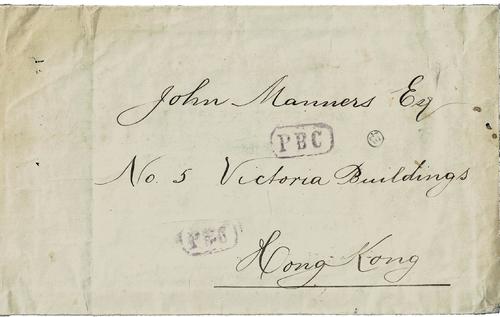 John Manners Esq
PBC
No. 5 Victoria Buildings
PBC
Hong Kong